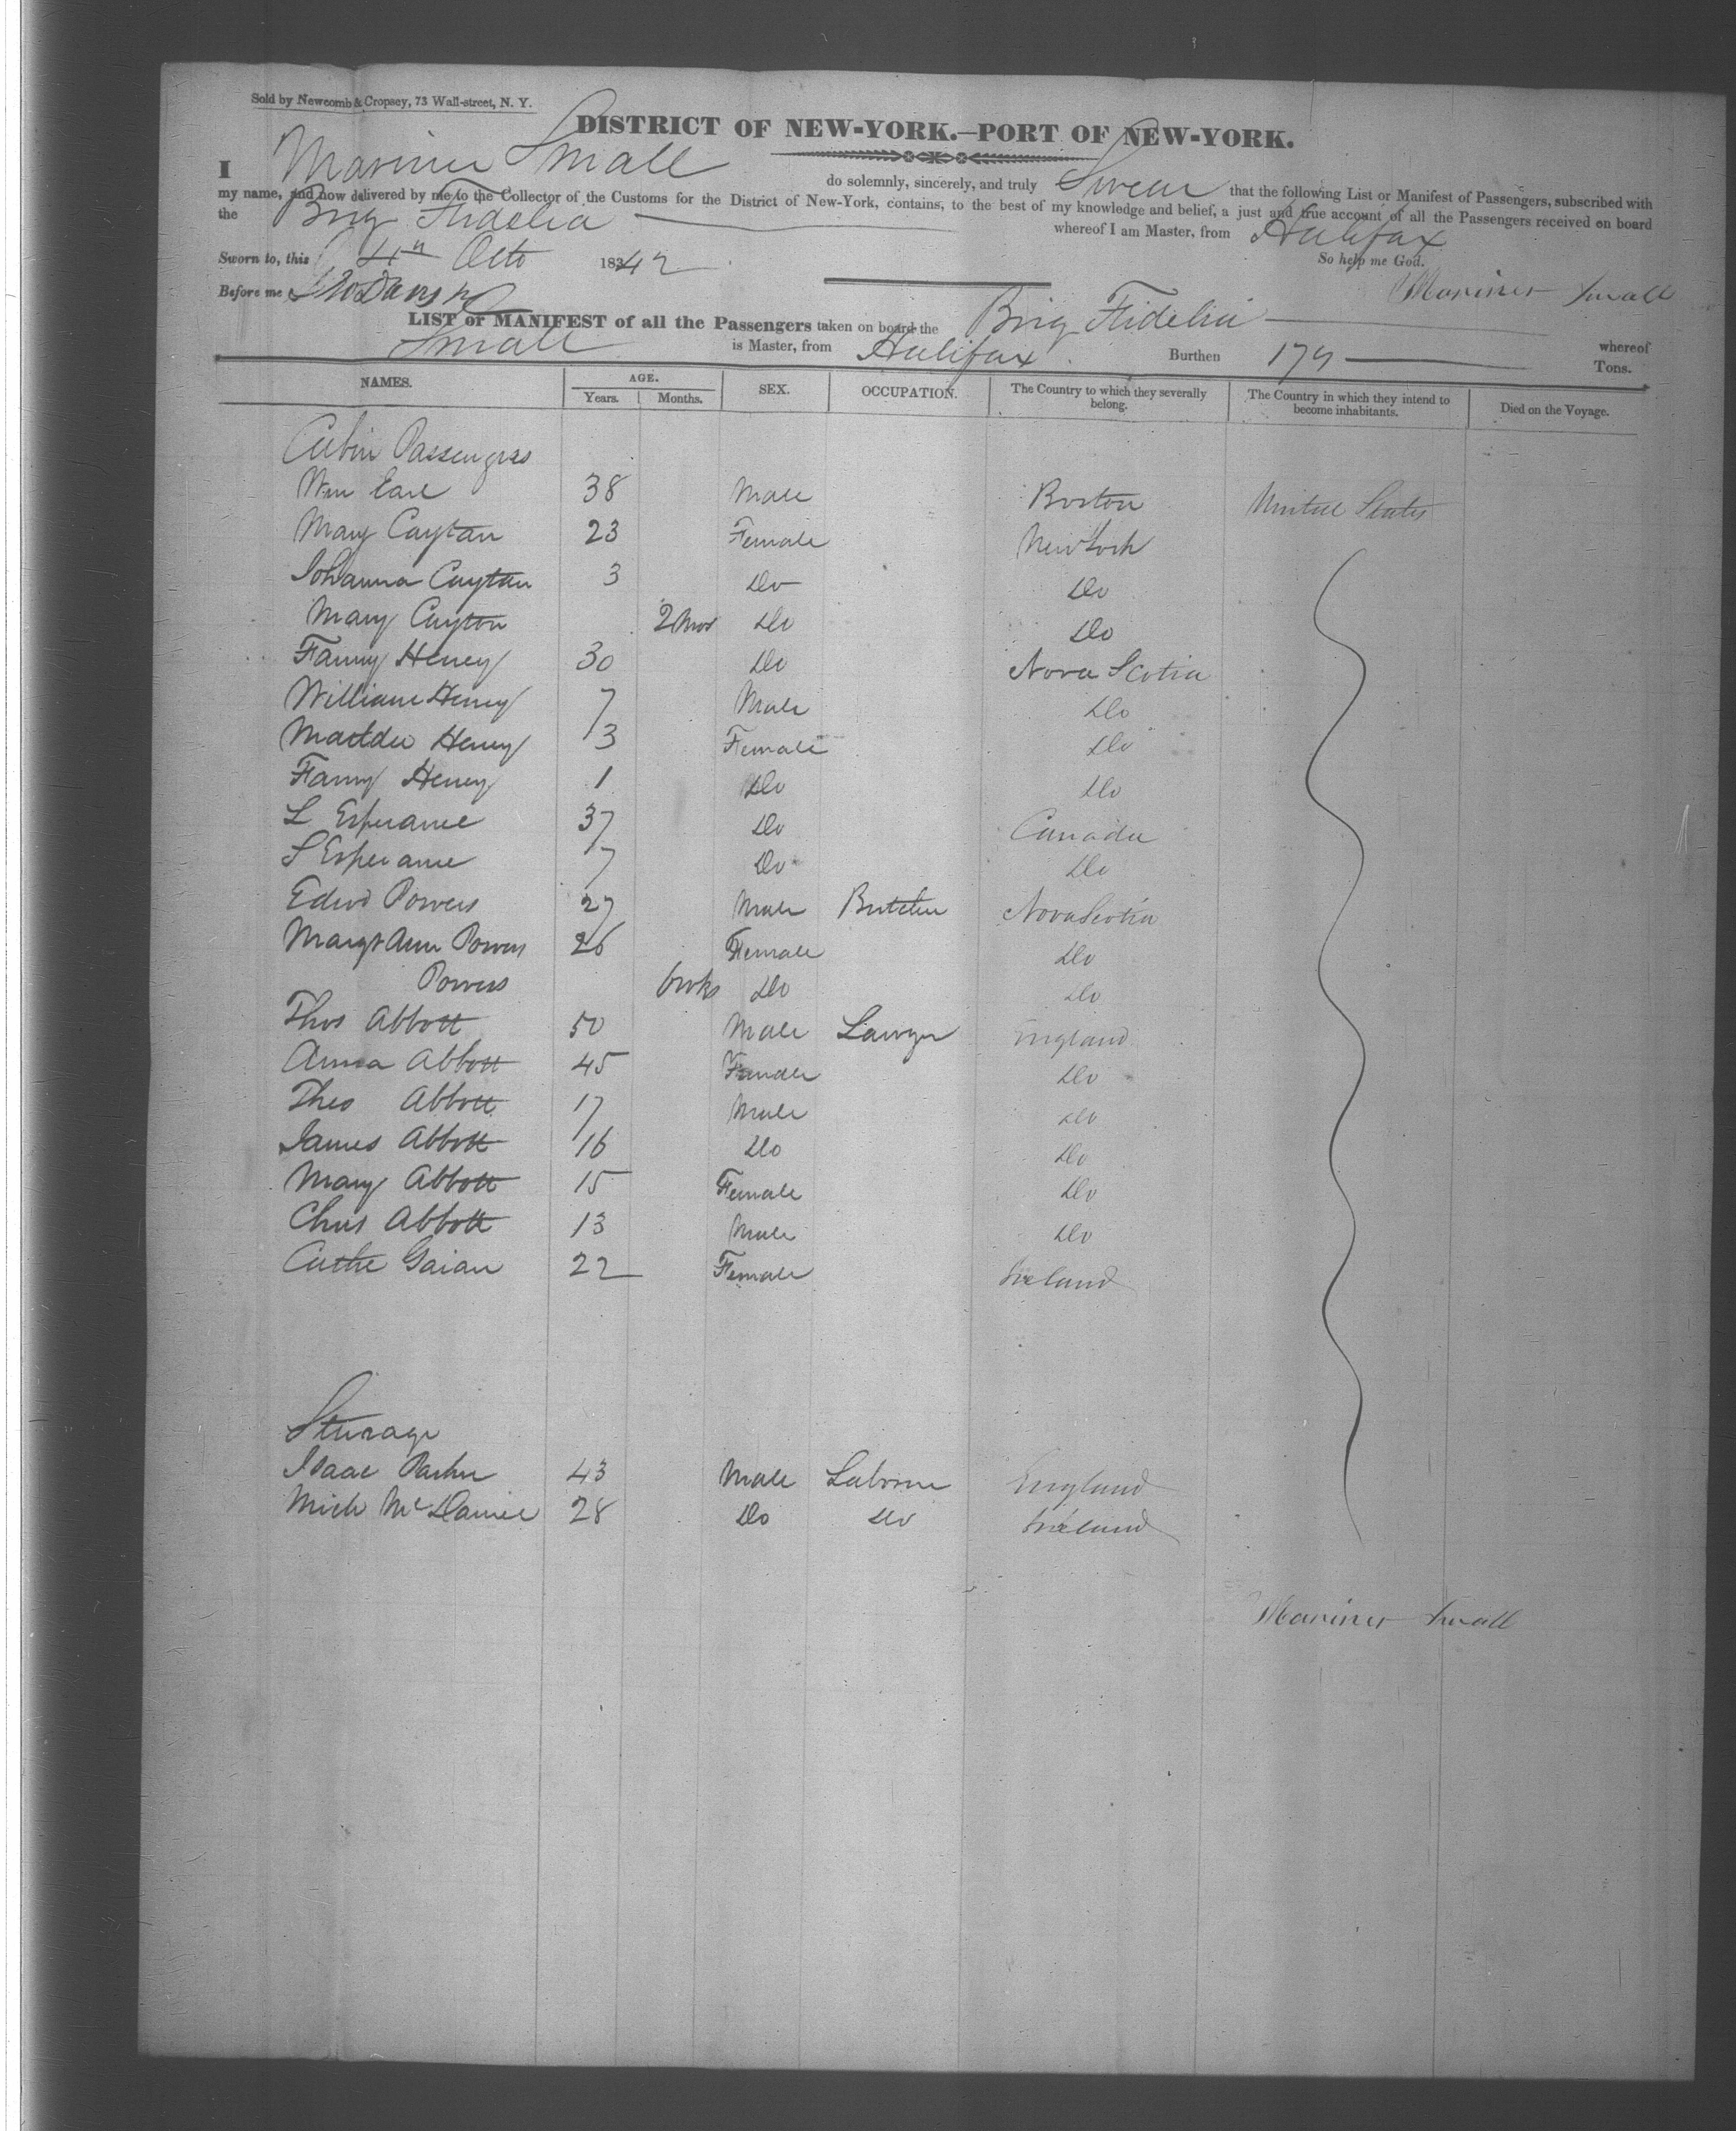 Sold by Newcomb & Cropsey, 73 Wall-street, N. Y.
DISTRICT OF NEW-YORK.—PORT OF NEW-YORK.
I Mariner Small do solemnly, sincerely, and truly Swear that the following List or Manifest of Passengers, subscribed with
my name, and now delivered by me to the Collector of the Customs for the District of New-York, contains, to the best of my knowledge and belief, a just and true account of all the Passengers received on board
the Brig Fidelia whereof I am Master, from Halifax
Sworn to, this 4th Octo 18342 So help me God.
Before me Mariner Small
LIST or MANIFEST of all the Passengers taken on board the Brig Fidelia whereof
Small is Master, from Halifax Burthen 179 Tons.
NAMES. AGE. Years. Months. SEX. OCCUPATION. The Country to which they severally belong. The Country in which they intend to become inhabitants. Died on the Voyage.
Cabin Passengers
Wm Earl 38 Male Boston United States
Mary Caytan 23 Female New York
Johanna Caytan 3 Do Do
Mary Cayton 2 Mos Do Do
Fanny Henry 30 Do Nova Scotia
William Henry 7 Male Do
Matilda Henry 3 Female Do
Fanny Henry 1 Do Do
L Esperance 37 Do Canada
S Esperance 7 Do Do
Edwd Powers 27 Male Butcher Nova Scotia
Margt Ann Powers 26 Female Do
Powers 6 wks Do Do
Thos Abbott 50 Male Lawyer England
Anna Abbott 45 Female Do
Theo Abbott 17 Male Do
James Abbott 16 Do Do
Mary Abbott 15 Female Do
Chas Abbott 13 Male Do
Cathe Gaian 22 Female Ireland
Sturage
Isaac Parker 43 Male Laborer England
Mich McDaniel 28 Do Do Ireland
Mariner Small